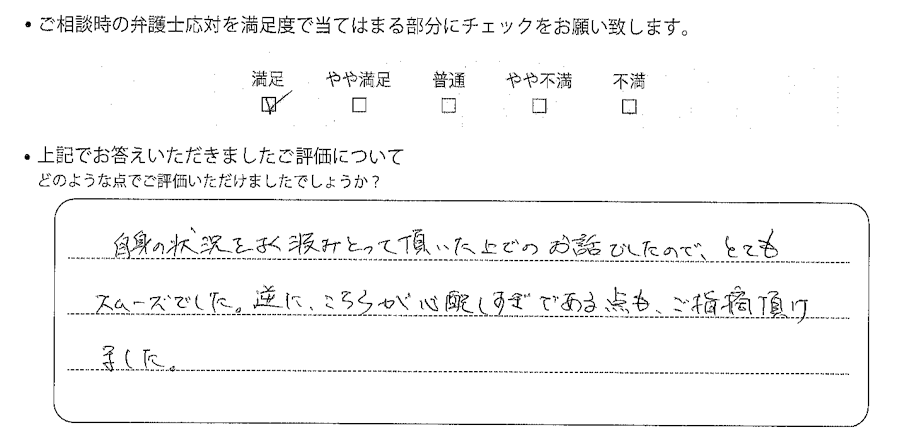 ・ご相談時の弁護士応対を満足度で当てはまる部分にチェックをお願い致します。
満足 やや満足 普通 やや不満 不満
☑ □ □ □ □
・上記でお答えいただきましたご評価について
どのような点でご評価いただけましたでしょうか？
自身の状況をよく汲みとって頂いた上でのお話でしたので、とても
スムーズでした。逆に、こちらが心配しすぎである点も、ご指摘頂け
ました。